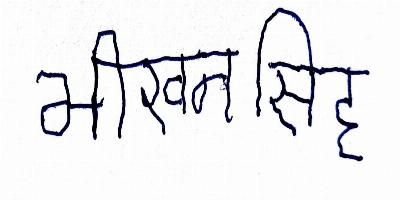 भीखन सिंह